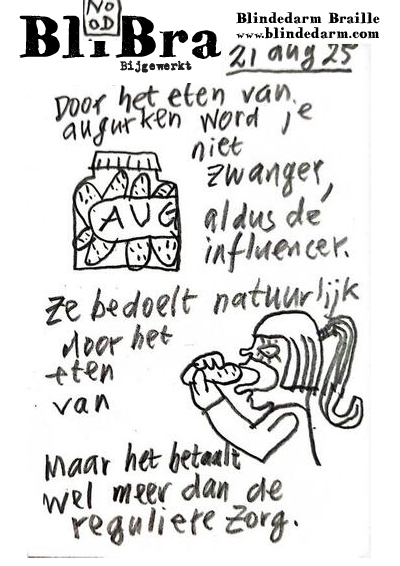 NO
OD
BliBra
Bijgewerkt
Blindedarm Braille
www.blindedarm.com
21 aug 25
Door het eten van
augurken word je
niet
zwanger,
aldus de
influencer.
AUG
Ze bedoelt natuurlijk
door het
eten
van
Maar het betaalt
wel meer dan de
reguliere zorg.